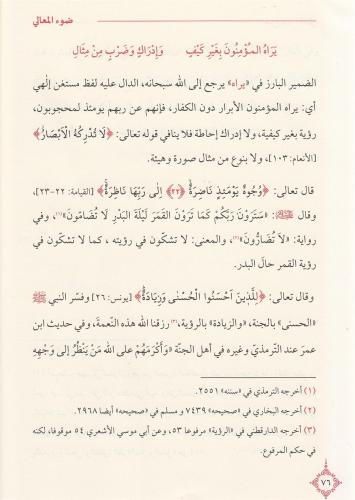 ضوء المعالي
يَرَاهُ المُؤْمِنُونَ بِغَيْرِ كَيْفٍ وَإِدْرَاكٍ وَضَرْبٍ مِنْ مِثَالِ
الضمير البارز في «يراه» يرجع إلى الله سبحانه، الدال عليه لفظ مستغن إلهي
أي: يراه المؤمنون الأبرار دون الكفار، فإنهم عن ربهم يومئذ لمحجوبون،
رؤية بغير كيفية، ولا إدراك إحاطة فلا ينافي قوله تعالى: ﴿لَا تُدْرِكُهُ الْأَبْصَارُ﴾
[الأنعام: ١٠٣]، ولا بنوع من مثال صورة وهيئة.
قال تعالى: ﴿وُجُوهٌ يَوْمَئِذٍ نَاضِرَةٌ ﴿٢٢﴾ إِلَى رَبِّهَا نَاظِرَةٌ﴾ [القيامة: ٢٢-٢٣]،
وقال ﷺ: «سَتَرَوْنَ رَبَّكُمْ كَمَا تَرَوْنَ القَمَرَ لَيْلَةَ البَدْرِ لَا تُضَامُّونَ»(١)، وفي
رواية: «لَا تُضَارُّونَ»(٢)، والمعنى: لا تشكون في رؤيته ، كما لا تشكون في
رؤية القمر حال البدر.
وقال تعالى: ﴿لِلَّذِينَ أَحْسَنُوا الْحُسْنَى وَزِيَادَةٌ﴾ [يونس: ٢٦] وفسّر النبي ﷺ
«الحسنى» بالجنة، «والزيادة» بالرؤية،(٣) رزقنا الله هذه النِّعمة، وفي حديث ابن
عمر عند الترمذيّ وغيره في أهل الجنّة «وَأَكْرَمُهُمْ على الله مَنْ يَنْظُرُ إلى وَجْهِهِ
(١) أخرجه الترمذي في «سننه» ٢٥٥١.
(٢) أخرجه البخاري في «صحيحه» ٧٤٣٩ ومسلم في «صحيحه» أيضا ٢٩٦٨.
(٣) أخرجه الدارقطني في «الرؤية» مرفوعا ٥٣، وعن أبي موسى الأشعري ٥٤ موقوفا، لكنه
في حكم المرفوع.
٧٦